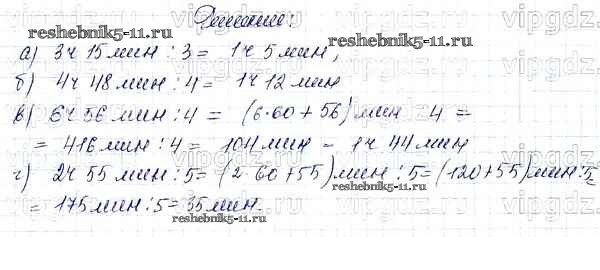 Решение:
а) 3ч 15мин : 3 = 1ч 5мин,
б) 4ч 48мин : 4 = 1ч 12мин
в) 6ч 56мин : 4 = (6·60 + 56)мин 4 =
= 416мин : 4 = 104мин = 1ч 44мин
г) 2ч 55мин : 5 = (2·60 + 55)мин : 5 = (120 + 55)мин : 5 =
= 175мин : 5 = 35мин.
reshebnik5-11.ru
reshebnik5-11.ru
reshebnik5-11.ru
reshebnik5-11.ru
vipgdz.
vipgdz.
vipgdz.
vipgdz.